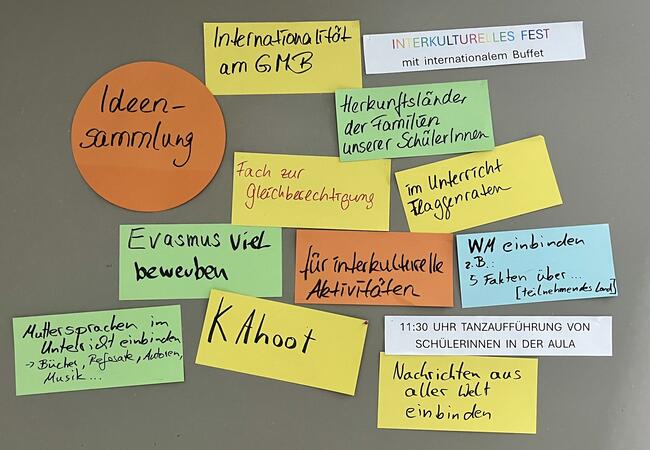 Internationalität
am GMB
INTERKULTURELLES FEST
mit internationalem Buffet
Ideen-
sammlung
Herkunftsländer
der Familien
unserer SchülerInnen
Fach zur
Gleichberechtigung
im Unterricht
Flaggenraten
Erasmus viel
bewerben
für interkulturelle
Aktivitäten
WM einbinden
z.B.:
5 Fakten über...
[teilnehmendes Land]
Muttersprachen im
Unterricht einbinden
→ Bücher, Referate, Autoren,
Musik...
KAhoot
11:30 UHR TANZAUFFÜHRUNG VON
SCHÜLERINNEN IN DER AULA
Nachrichten aus
aller Welt
einbinden